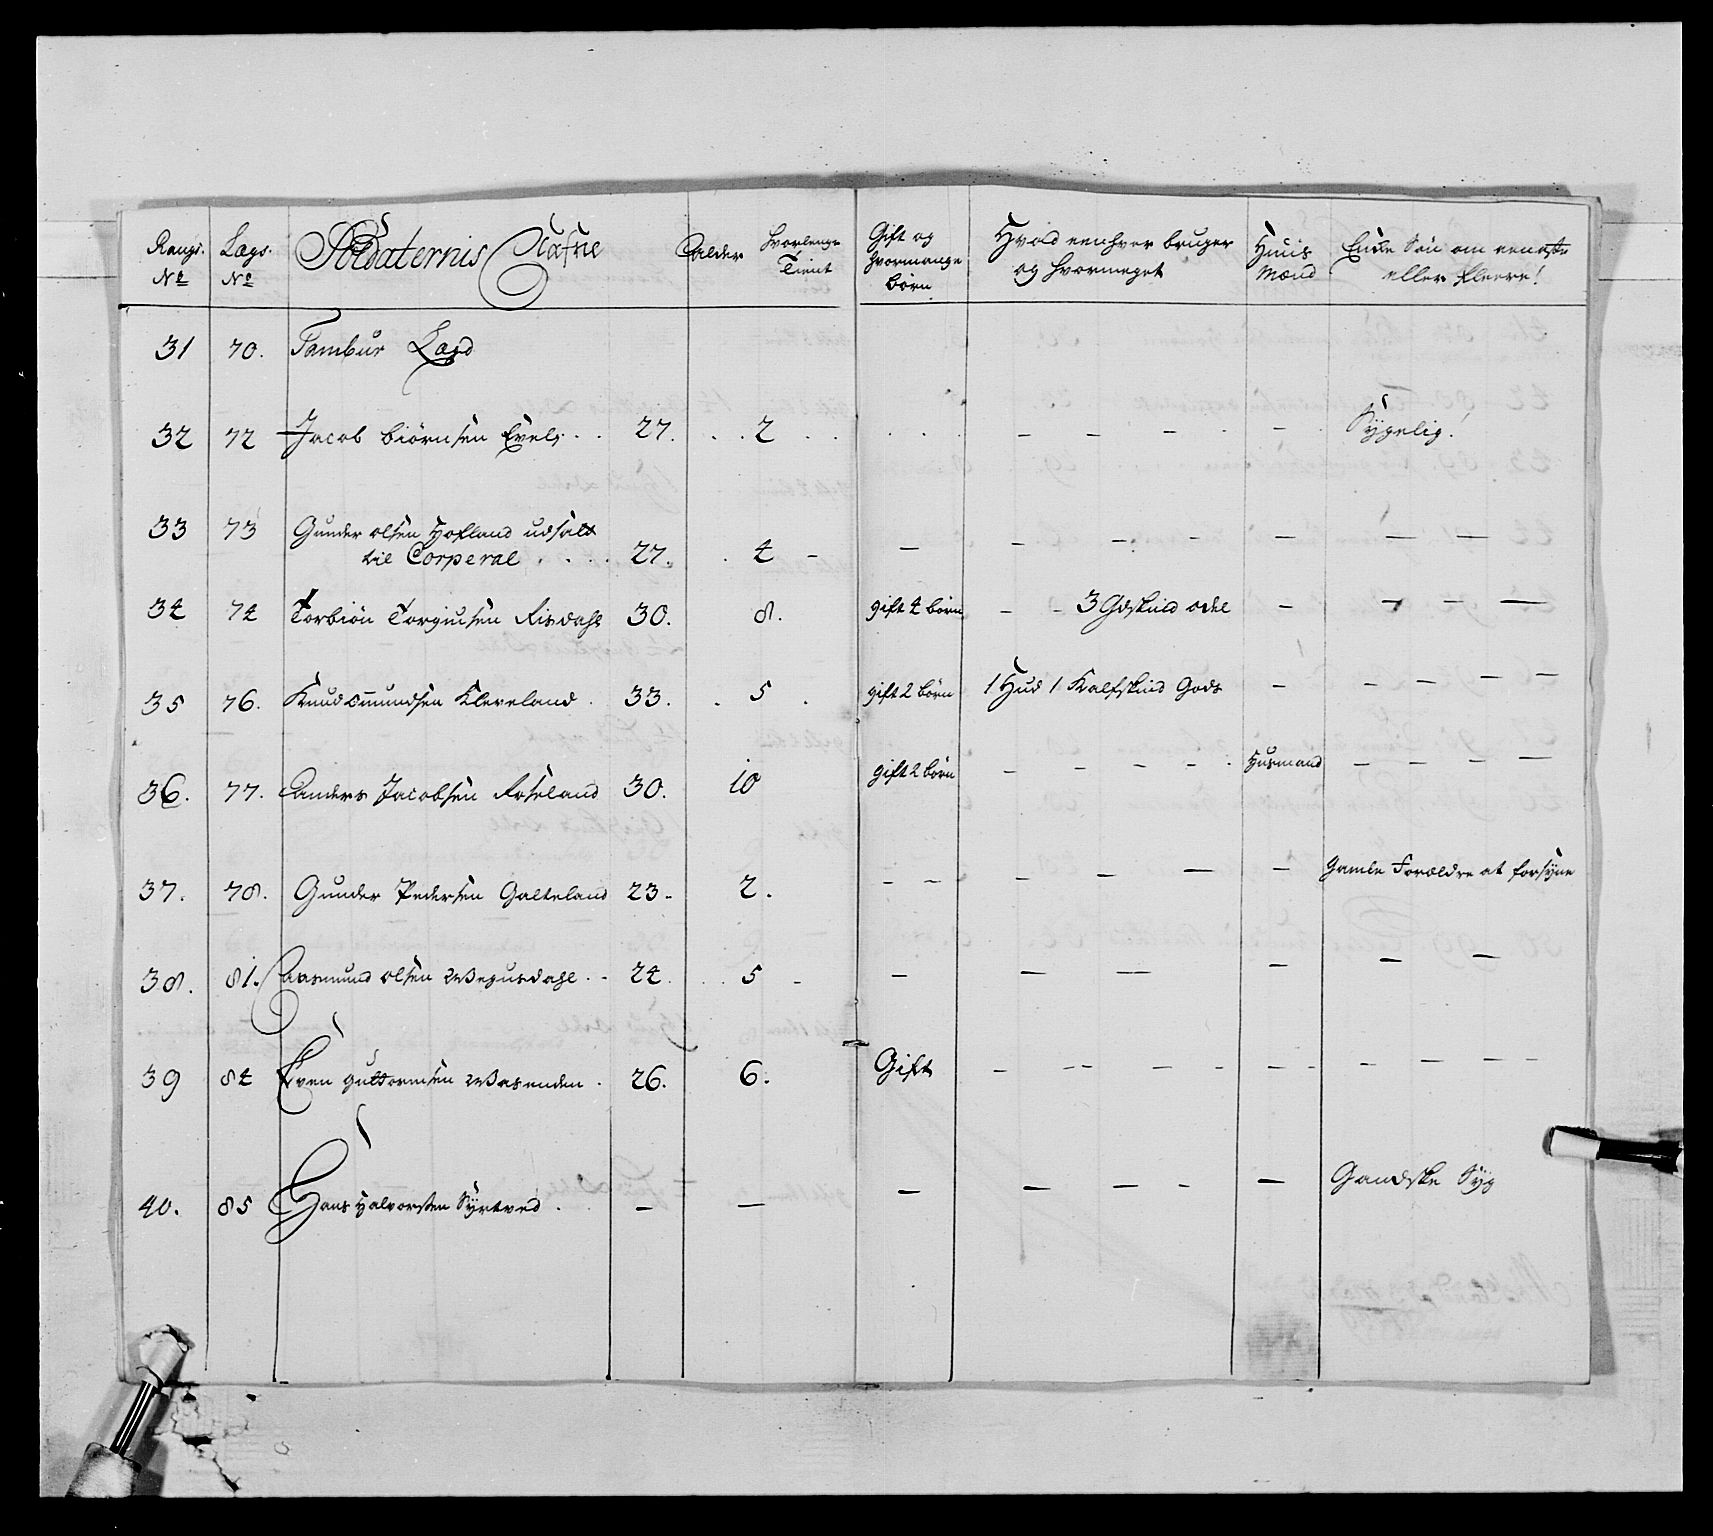 Rangs. No Lægs. No Soldaternis Nafne Alder hvorlenge Tient Gift og hvormange börn Hvad eenhver bruger og hvormeget Huus Mænd Enke Sön om eeneste eller fleere!
31 70. Tambur Lægd
32 72 Jacob biörnsen Evels . . 27. . . 2 . . . . . - - - . - . Sÿgelig.!
33 73 Gunder olsen Hofland udsalt
til Corperal . . . . 27. . 4 - - - - - - - -
34 74 Torbiön Torgiusen Risdahl 30. 8. gift 4 börn - - 3 Gdskind odel - - - -
35 76. Knud Omundsen Kleveland . 33. . 5 . gift 2 börn 1 Hud 1 Kalfskind Gods - - - - -
36. 77. Anders Jacobsen Røseland 30. 10 gift 2 börn - - - - . Husmand - - - -
37. 78. Gunder Pedersen Galteland 23. 2. - - - - - - gamle Forældre at forsÿne
38. 81. Aasmund olsen Wegusdahl . . 24. . . 5 - - - - - - -
39 84 Even guttormsen Wasenden . 26. 6. Gift - - - - - - - - - - -
40. 85 Hans Halvorsen Sÿrtved . - - - - - - - Gandske Sÿg